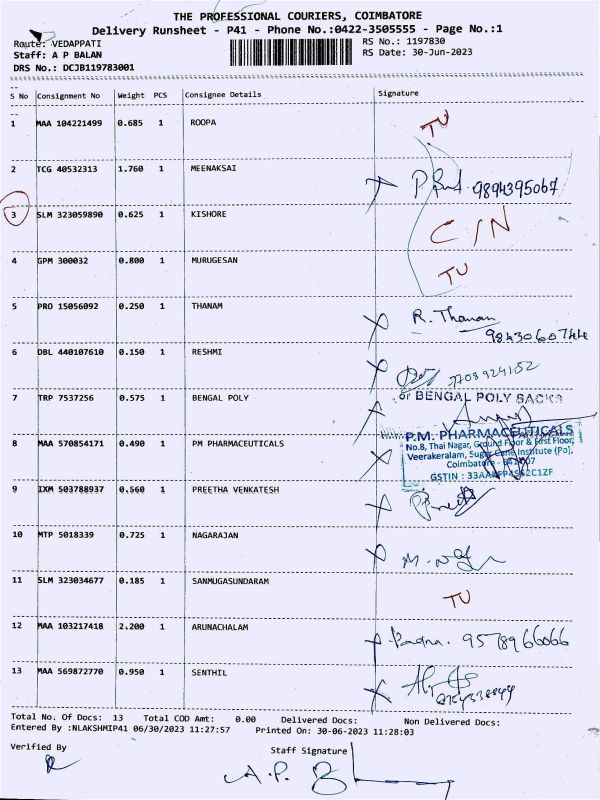 THE PROFESSIONAL COURIERS, COIMBATORE
Delivery Runsheet - P41 - Phone No.:0422-3505555 - Page No.:1
Route: VEDAPPATI
RS No.: 1197830
Staff: A P BALAN
RS Date: 30-Jun-2023
DRS No.: DCJB119783001
S No Consignment No Weight PCS Consignee Details Signature
1 MAA 104221499 0.685 1 ROOPA TU
2 TCG 40532313 1.760 1 MEENAKSAI 9894395067
3 SLM 323059890 0.625 1 KISHORE C/N
4 GPM 300032 0.800 1 MURUGESAN TU
5 PRO 15056092 0.250 1 THANAM R. Thanam
9843060744
6 DBL 440107610 0.150 1 RESHMI 7708924152
7 TRP 7537256 0.575 1 BENGAL POLY or BENGAL POLY SACKS
8 MAA 570854171 0.490 1 PM PHARMACEUTICALS P.M. PHARMACEUTICALS
No.8, Thai Nagar, Ground Floor & First Floor,
Veerakeralam, Sugar Cane Institute (Po),
Coimbatore
GSTIN :
9 IXM 503788937 0.560 1 PREETHA VENKATESH
10 MTP 5018339 0.725 1 NAGARAJAN
11 SLM 323034677 0.185 1 SANMUGASUNDARAM TU
12 MAA 103217418 2.200 1 ARUNACHALAM Padma. 9578966066
13 MAA 569872770 0.950 1 SENTHIL
Total No. Of Docs: 13 Total COD Amt: 0.00 Delivered Docs: Non Delivered Docs:
Entered By :NLAKSHMIP41 06/30/2023 11:27:57 Printed On: 30-06-2023 11:28:03
Verified By
Staff Signature
A.P.